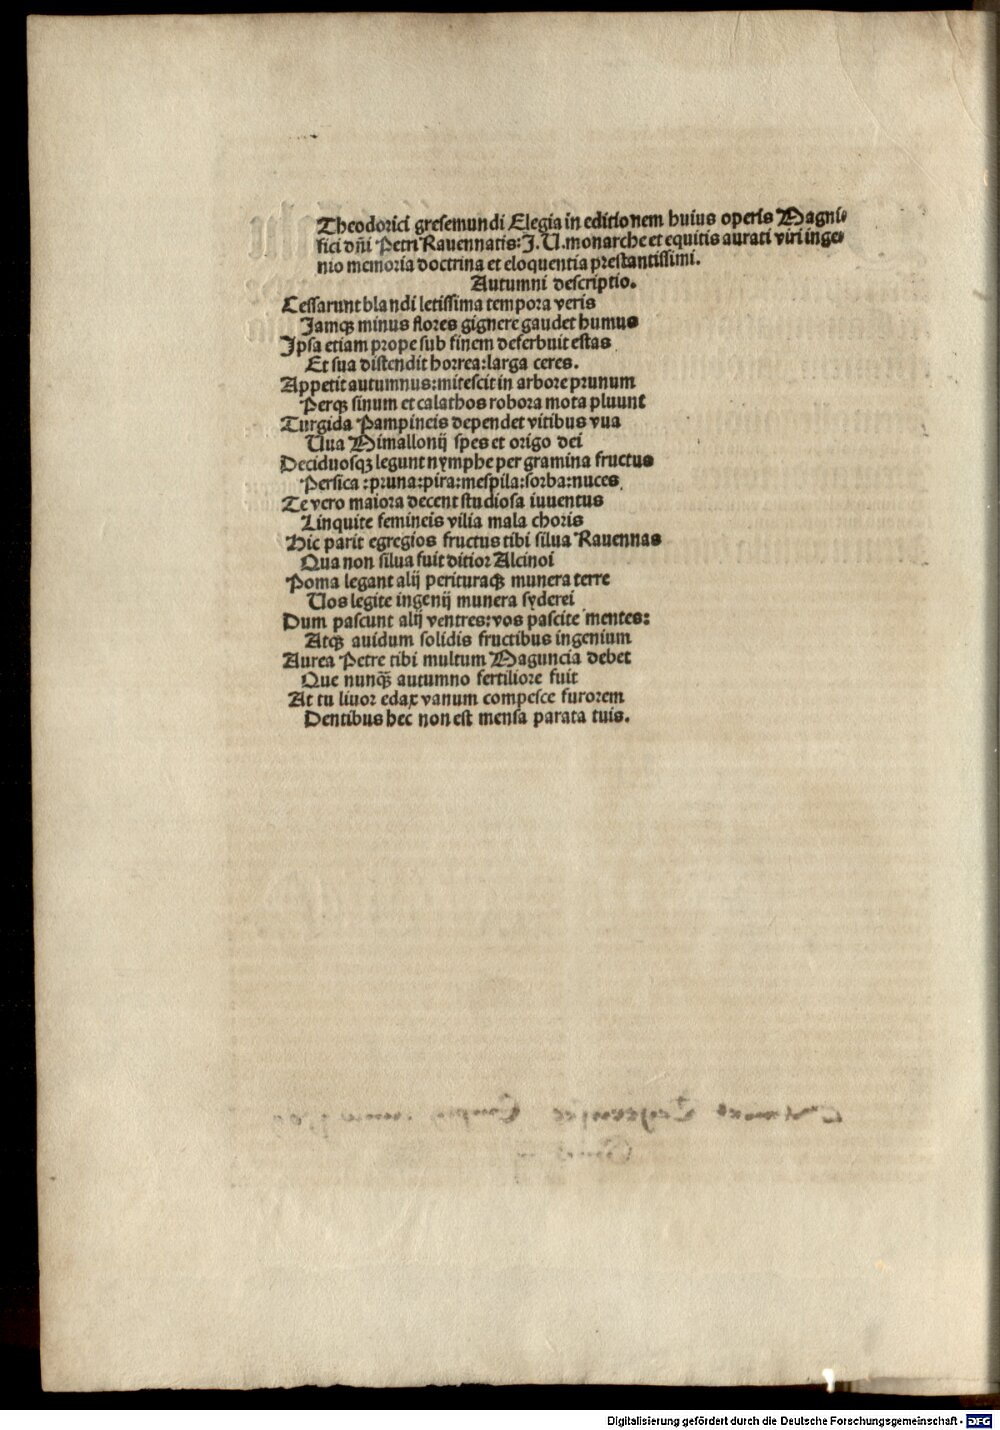 Theodorici gresemundi Elegia in editionem huius operis Magni-
fici dñi Petri Rauennatis: J. U. monarche et equitis aurati viri inge-
nio memoria doctrina et eloquentia prestantissimi.
Autumni descriptio.
Cessarunt blandi letissima tempora veris
Jamqꝫ minus flores gignere gaudet humus
Ipsa etiam prope sub finem deferbuit estas
Et sua distendit horrea: larga ceres.
Appetit autumnus: mitescit in arbore prunum
Perqꝫ sinum et calathos robora mota pluunt
Turgida Pampineis dependet vitibus vua
Uua Mimallonij spes et origo dei
Deciduosqꝫ legunt nymphe per gramina fructus
Persica: pruna: pira: mespila: sorba: nuces.
Te vero maiora decent studiosa iuuentus
Linquite femineis vilia mala choris
Hic parit egregios fructus tibi silua Rauennas
Qua non silua fuit ditior Alcinoi
Poma legant alij perituraqꝫ munera terre
Uos legite ingenij munera syderei
Dum pascunt alij ventres: vos pascite mentes:
Atqꝫ auidum solidis fructibus ingenium
Aurea Petre tibi multum Maguncia debet
Que nunqꝫ̃ autumno fertiliore fuit
At tu liuor edax vanum compesce furorem
Dentibus hec non est mensa parata tuis.
Digitalisierung gefördert durch die Deutsche Forschungsgemeinschaft - DFG